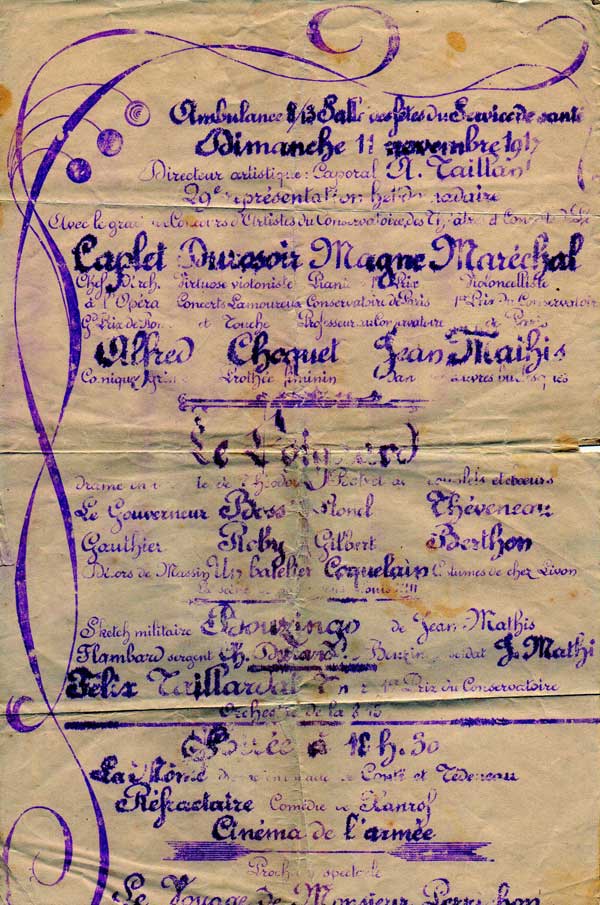 Ambulance 8/13 Salle des fêtes du Service de santé
Dimanche 11 novembre 1917
Directeur artistique: Caporal A. Taillan
29e représentation hebdomadaire
Avec le gracieux Concours d'Artistes du Conservatoire, des Théâtres et Concerts de
Caplet Durosoir Magne Maréchal
Chef d'Orch. Virtuose violoniste Piano 1er Prix Violoncelliste
à l'Opéra Concerts Lamoureux Conservatoire de Paris 1er Prix du Conservatoire
Gd Prix de Rome et Touche Professeur au Conservatoire de Paris
Alfred Choquet Jean Mathis
Comique féminin Dans œuvres
Le Poignard
drame en de couplets et chœurs
Le Gouverneur Bess Lionel Théveneau
Gauthier Roby Gilbert Berthon
Décors de Massin Un batelier Coquelain Costumes de chez Livon
La scène
Sketch militaire Bouzingo de Jean Mathis
Flambard sergent Ch. soldat J. Mathi
Félix Taillardat 1er Prix du Conservatoire
Orchestre de la 8/13
Soirée à 18 h. 30
La Môme de Conti et Tédeneau
Réfractaire Comédie de Kanrof
Cinéma de l'armée
Prochain spectacle
Le Voyage de Monsieur Perrichon